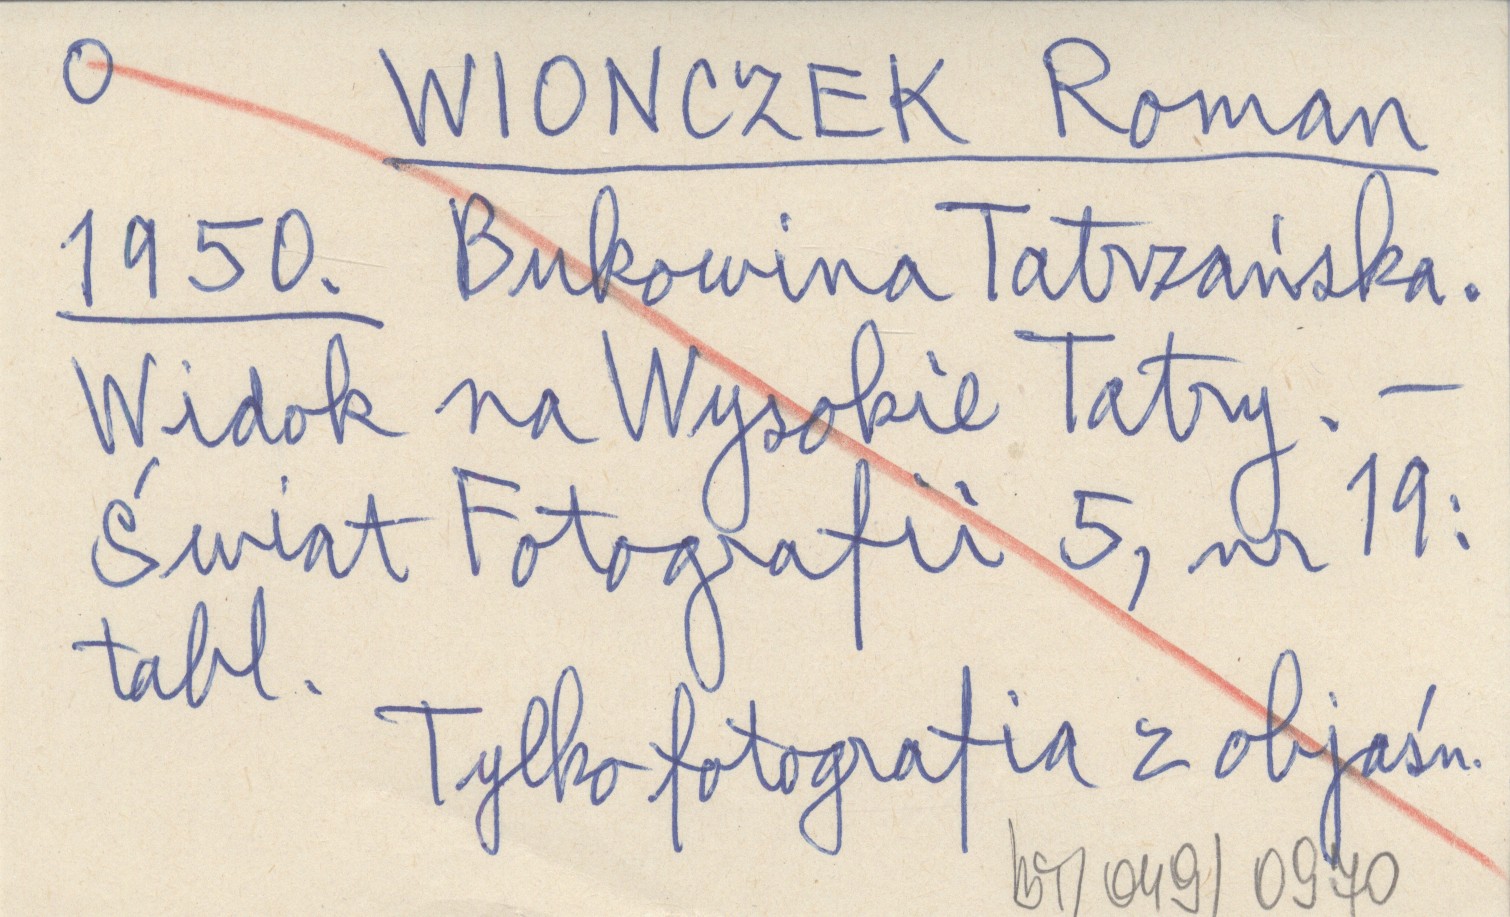 O WIONCZEK Roman
1950. Bukowina Tatrzańska.
Widok na Wysokie Tatry. –
Świat Fotografii 5, nr 19:
tabl.
Tylko fotografia z objaśn.
/049/0970